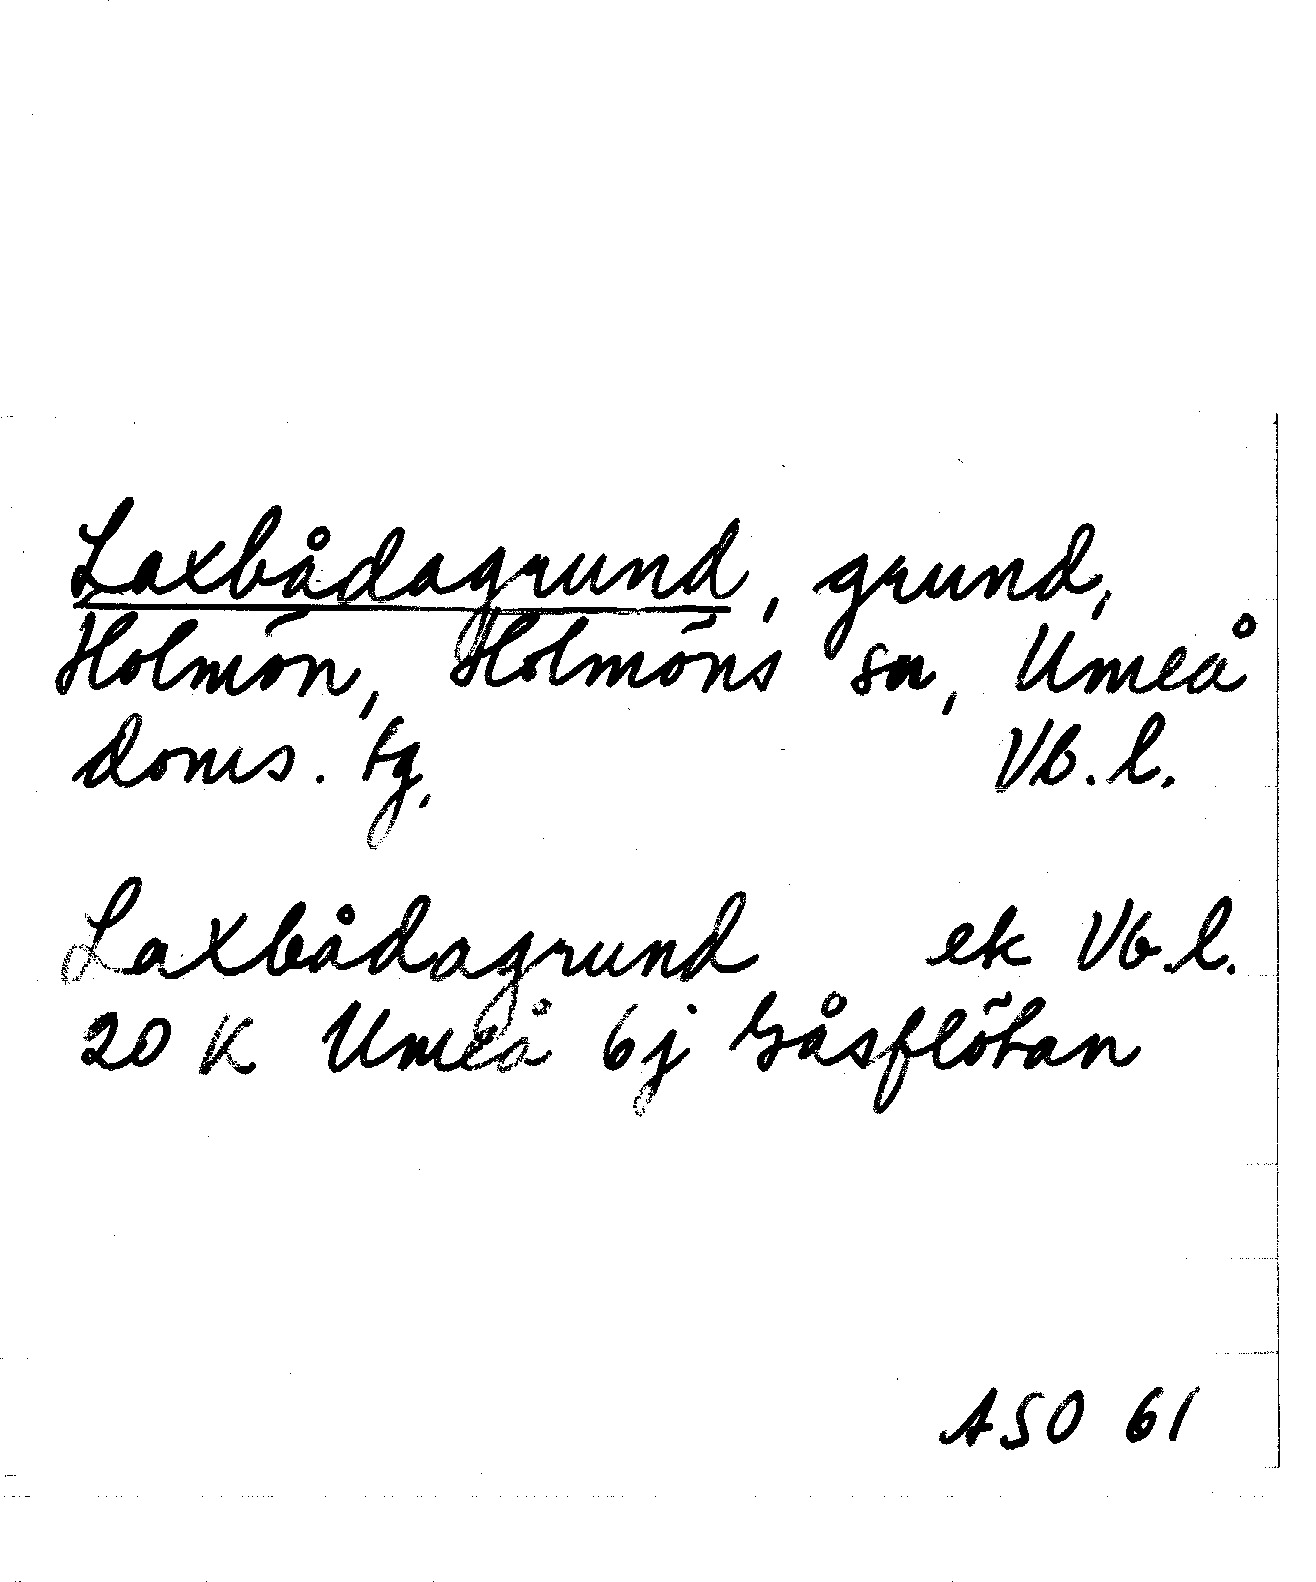 Laxbådagrund, grund,
Holmön, Holmöns sn, Umeå
doms. tg. Vb. l.
Laxbådagrund ek Vb. l.
20 K Umeå 6j Gåsflötan
ASO 61